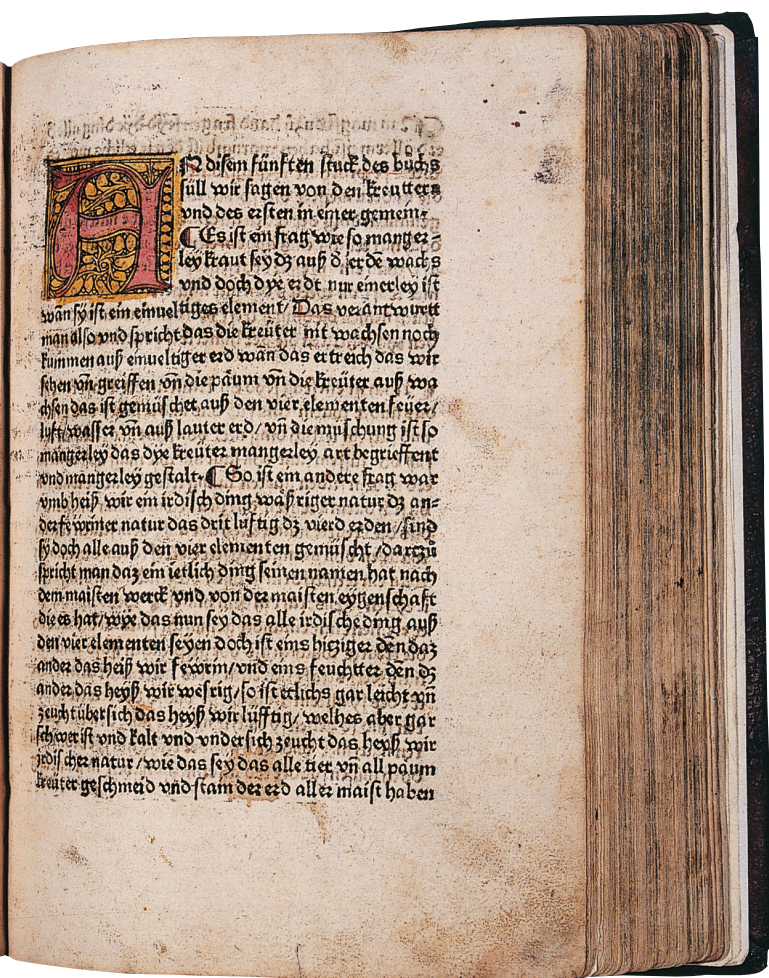 AN disem fünften stuck des buchs
süll wir sagen von den kreutters
vnd des ersten in einer gemein·
¶ Es ist ein frag wie so manger⸗
ley kraut sey dz auß d̕ erde wachs
vnd doch dye erdt nur einerley ist
wañ sÿ ist ein einueltiges element/ Das verantwurtt
man also vnd spricht das die kreüter nit wachsen noch
kummen auß einueltiger erd wañ das ertreich das wir
sehen vñ greiffen vñ die paum vñ die kreüter auß wa
chsen das ist gemüschet auß den vier elementen feüer/
luft/wasser vñ auß lauter erd/ vñ die müschung ist so
mangerleÿ das dye kreuter mangerley art begrieffent
vnd mangerleÿ gestalt· ¶ So ist ein andere frag war
vmb heiß wir ein irdisch ding waßriger natur dz an⸗
der fewriner natur das drit luftig dz vierd erden /sind
sÿ doch alle auß den vier elementen gemüscht /dartzů
spricht man daz ein ietlich ding seinen namen hat nach
dem maisten werck vnd von der maisten eygenschaft
die es hat/wye das nun sey das alle irdische ding auß
den vier elementen seyen doch ist eins hitziger den daz
ander das heiß wir fewrin/vnd eins feuchtter den dz
ander das heyß wir wesrig/so ist etlichs gar leicht vñ
zeucht übersich das heyß wir lüfftig/ welhes aber gar
schwer ist vnd kalt vnd vndersich zeucht das heyß wir
irdischer natur/wie das sey das alle tier vñ all paum
kreüter geschmeid vnd stain der erd aller maist haben